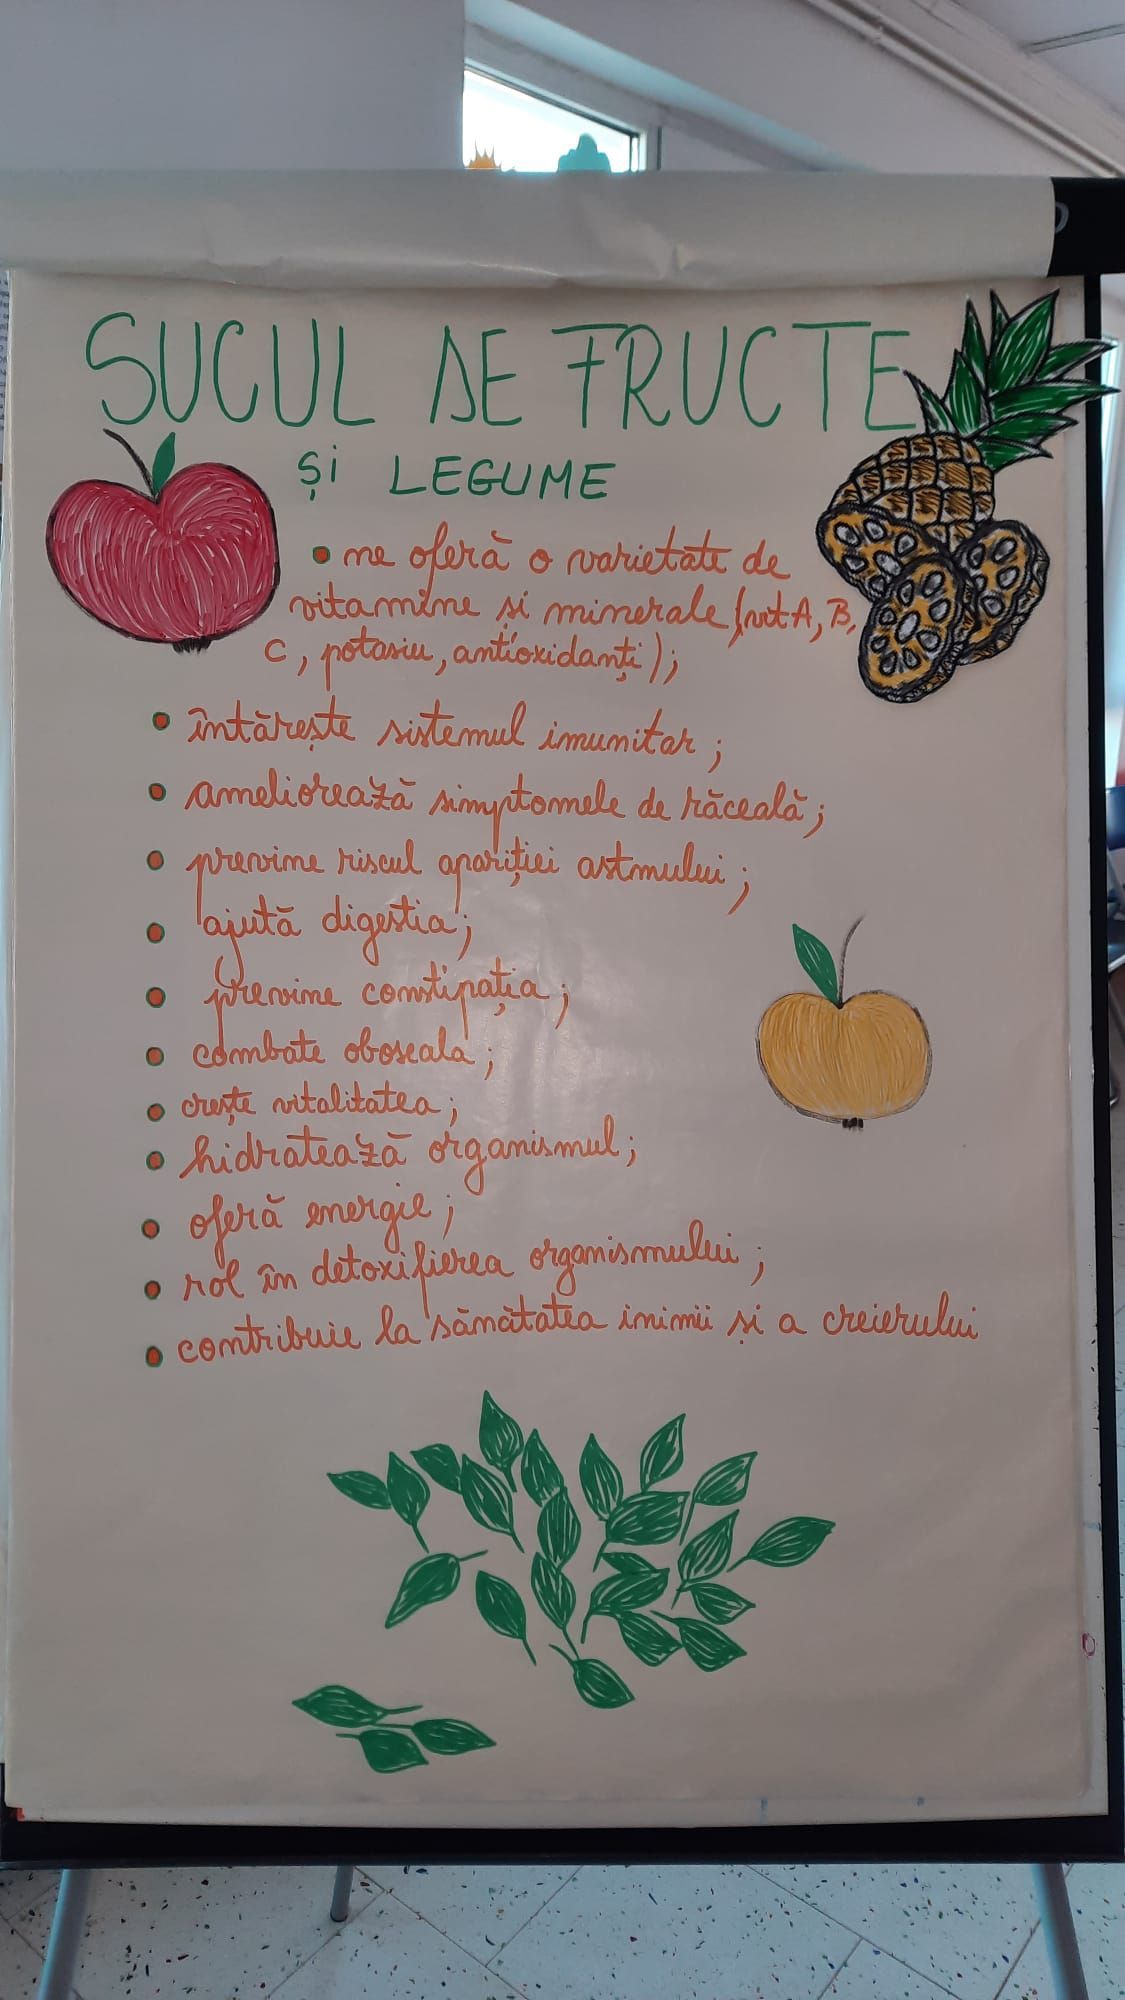 SUCUL DE FRUCTE
ȘI LEGUME
• ne oferă o varietate de
vitamine și minerale (vit A, B,
C, potasiu, antioxidanți);
• întărește sistemul imunitar;
• ameliorează simptomele de răceală;
• previne riscul apariției astmului;
• ajută digestia;
• previne constipația;
• combate oboseala;
• crește vitalitatea;
• hidratează organismul;
• oferă energie;
• rol în detoxifierea organismului;
• contribuie la sănătatea inimii și a creierului